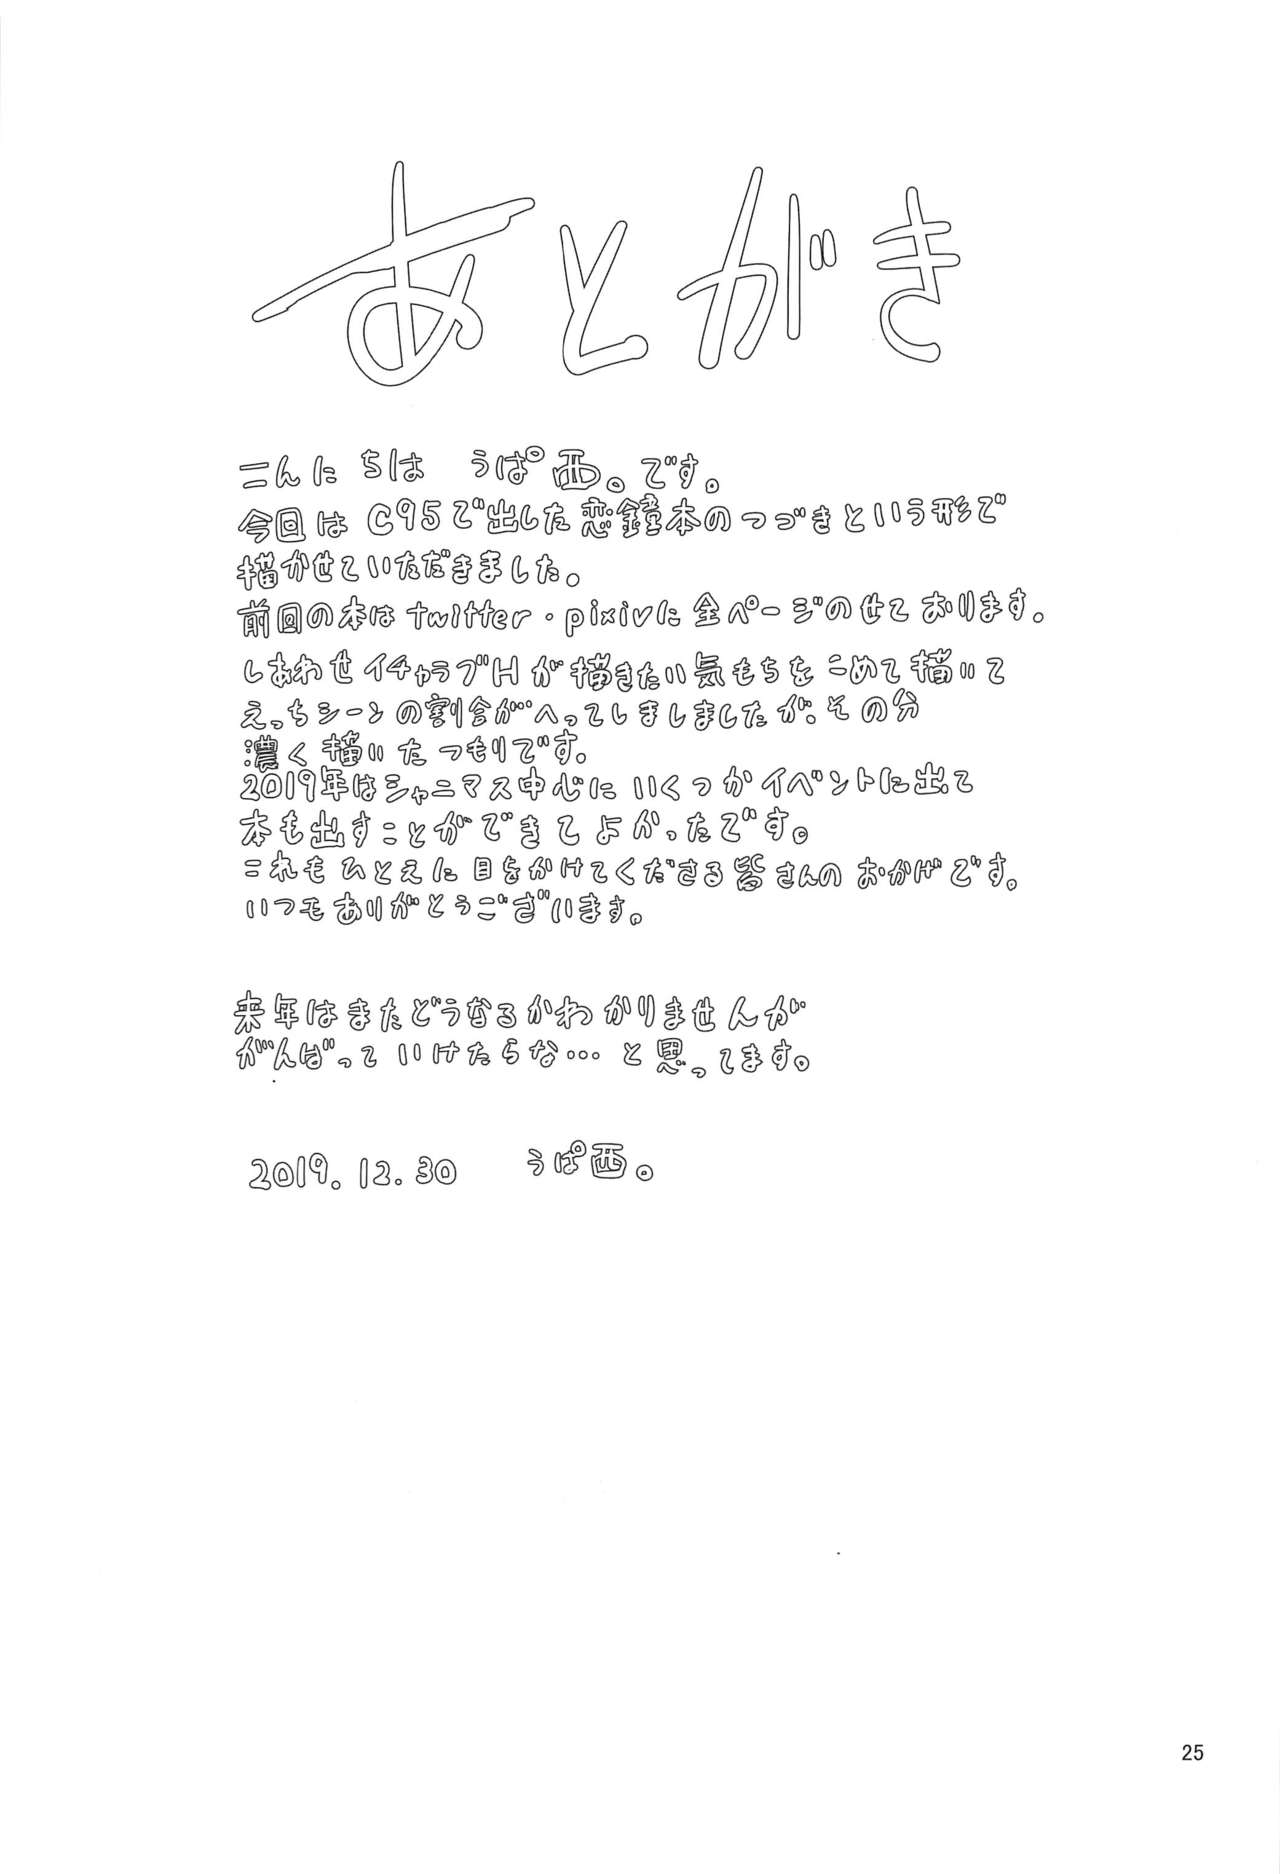 あとがき
こんにちは うぱ西。です。
今回はC95で出した恋鐘本のつづきという形で
描かせていただきました。
前回の本はtwitter・pixivに全ページのせております。
しあわせイチャラブHが描きたい気もちをこめて描いて
えっちシーンの割合がへってしましましたが、その分
濃く描いたつもりです。
2019年はシャニマス中心にいくつかイベントに出て
本も出すことができてよかったです。
これもひとえに目をかけてくださる皆さんのおかげです。
いつもありがとうございます。
来年はまたどうなるかわかりませんが
がんばっていけたらな…と思ってます。
2019.12.30 うぱ西。
25